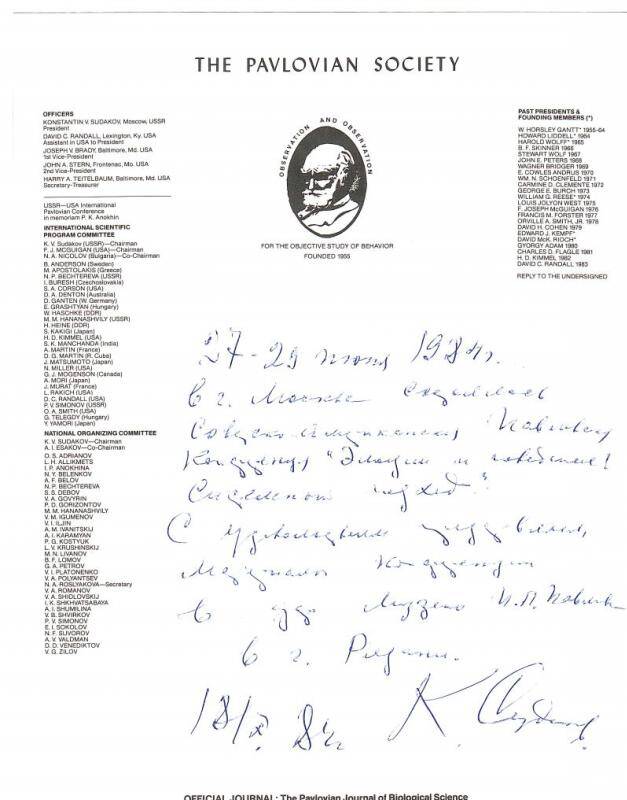 THE PAVLOVIAN SOCIETY
OFFICERS
KONSTANTIN V. SUDAKOV, Moscow, USSR
President
DAVID C. RANDALL, Lexington, Ky. USA
Assistant in USA to President
JOSEPH V. BRADY, Baltimore, Md. USA
1st Vice-President
JOHN A. STERN, Frontenac, Mo. USA
2nd Vice-President
HARRY A. TEITELBAUM, Baltimore, Md. USA
Secretary-Treasurer
USSR—USA International
Pavlovian Conference
in memoriam P. K. Anokhin
INTERNATIONAL SCIENTIFIC
PROGRAM COMMITTEE
K. V. Sudakov (USSR)—Chairman
F. J. MCGUIGAN (USA)—Chairman
N. A. NICOLOV (Bulgaria)—Co-Chairman
B. ANDERSON (Sweden)
M. APOSTOLAKIS (Greece)
N. P. BECHTEREVA (USSR)
I. BURESH (Czechoslovakia)
S. A. CORSON (USA)
D. A. DENTON (Australia)
D. GANTEN (W. Germany)
E. GRASHTYAN (Hungary)
W. HASCHKE (DDR)
M. M. HANANASHVILY (USSR)
H. HEINE (DDR)
S. KAKIGI (Japan)
H. D. KIMMEL (USA)
S. K. MANCHANDA (India)
A. MARTIN (France)
D. G. MARTIN (R. Cuba)
J. MATSUMOTO (Japan)
N. MILLER (USA)
G. J. MOGENSON (Canada)
A. MORI (Japan)
J. MURAT (France)
L. RAKICH (USA)
D. C. RANDALL (USA)
P. V. SIMONOV (USSR)
O. A. SMITH (USA)
G. TELEGDY (Hungary)
Y. YAMORI (Japan)
NATIONAL ORGANIZING COMMITTEE
K. V. SUDAKOV—Chairman
A. I. ESAKOV—Co-Chairman
O. S. ADRIANOV
L. H. ALLIKMETS
I. P. ANOKHINA
N. Y. BELENKOV
A. F. BELOV
N. P. BECHTEREVA
S. S. DEBOV
V. A. GOVYRIN
P. D. GORIZONTOV
M. M. HANANASHVILY
V. M. IGUMENOV
V. I. ILJIN
A. M. IVANITSKIJ
A. I. KARAMYAN
P. G. KOSTYUK
L. V. KRUSHINSKIJ
M. N. LIVANOV
B. F. LOMOV
G. A. PETROV
V. I. PLATONENKO
V. A. POLYANTSEV
N. A. ROSLYAKOVA—Secretary
V. A. ROMANOV
V. A. SHIDLOVSKIJ
I. K. SHKHVATSABAYA
A. I. SHUMILINA
V. B. SHVIRKOV
P. V. SIMONOV
E. I. SOKOLOV
N. F. SUVOROV
A. V. VALDMAN
D. D. VENEDIKTOV
V. G. ZILOV
OBSERVATION AND OBSERVATION
FOR THE OBJECTIVE STUDY OF BEHAVIOR
FOUNDED 1955
PAST PRESIDENTS &
FOUNDING MEMBERS (*)
W. HORSLEY GANTT* 1955-64
HOWARD LIDDELL* 1964
HAROLD WOLFF* 1965
B. F. SKINNER 1966
STEWART WOLF 1967
JOHN E. PETERS 1968
WAGNER BRIDGER 1969
E. COWLES ANDRUS 1970
WM. N. SCHOENFELD 1971
CARMINE D. CLEMENTE 1972
GEORGE E. BURCH 1973
WILLIAM G. REESE* 1974
LOUIS JOLYON WEST 1975
F. JOSEPH McGUIGAN 1976
FRANCIS M. FORSTER 1977
ORVILLE A. SMITH, JR. 1978
DAVID H. COHEN 1979
EDWARD J. KEMPF*
DAVID McK. RIOCH*
GYORGY ADAM 1980
CHARLES D. FLAGLE 1981
H. D. KIMMEL 1982
DAVID C. RANDALL 1983
REPLY TO THE UNDERSIGNED
27-29 июня 1984г.
в г. Москве состоялась
Советско-Американская Павловская
Конференция "Эмоции и поведение:
Системный подход."
С удовольствием
материалы конференции
в музея И.П. Павлова
в г. Рязани.
84г. К. Судаков
OFFICIAL JOURNAL: The Pavlovian Journal of Biological Science